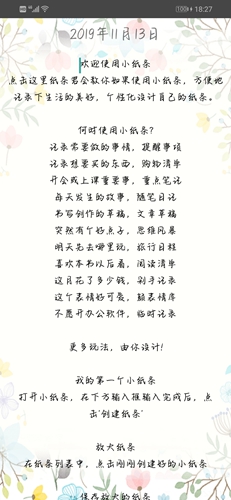 18:27
2019年11月13日
欢迎使用小纸条
点击这里纸条君会教你如果使用小纸条，方便地
记录下生活的美好，个性化设计自己的纸条。
何时使用小纸条？
记录需要做的事情，提醒事项
记录想要买的东西，购物清单
开会或上课重要事，重点笔记
每天发生的故事，随笔日记
书写创作的草稿，文章草稿
突然有个好点子，思维风暴
明天先去哪里玩，旅行日程
喜欢本书以后看，阅读清单
这月花了多少钱，剁手记录
这个表情好可爱，脸表情库
不愿开办公软件，临时记录
更多玩法，由你设计！
我的第一个小纸条
打开小纸条，在下方输入框输入完成后，点
击'创建纸条'
放大纸条
在纸条列表中，点击刚刚创建好的小纸条
保存放大的纸条